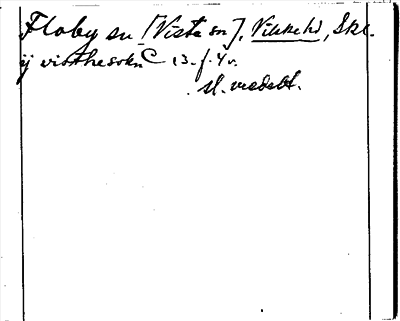 Floby sn [Vista sn], Vilske hd, Ska.
ij visthesokn C 13 f. 4v.
sl. medelt.